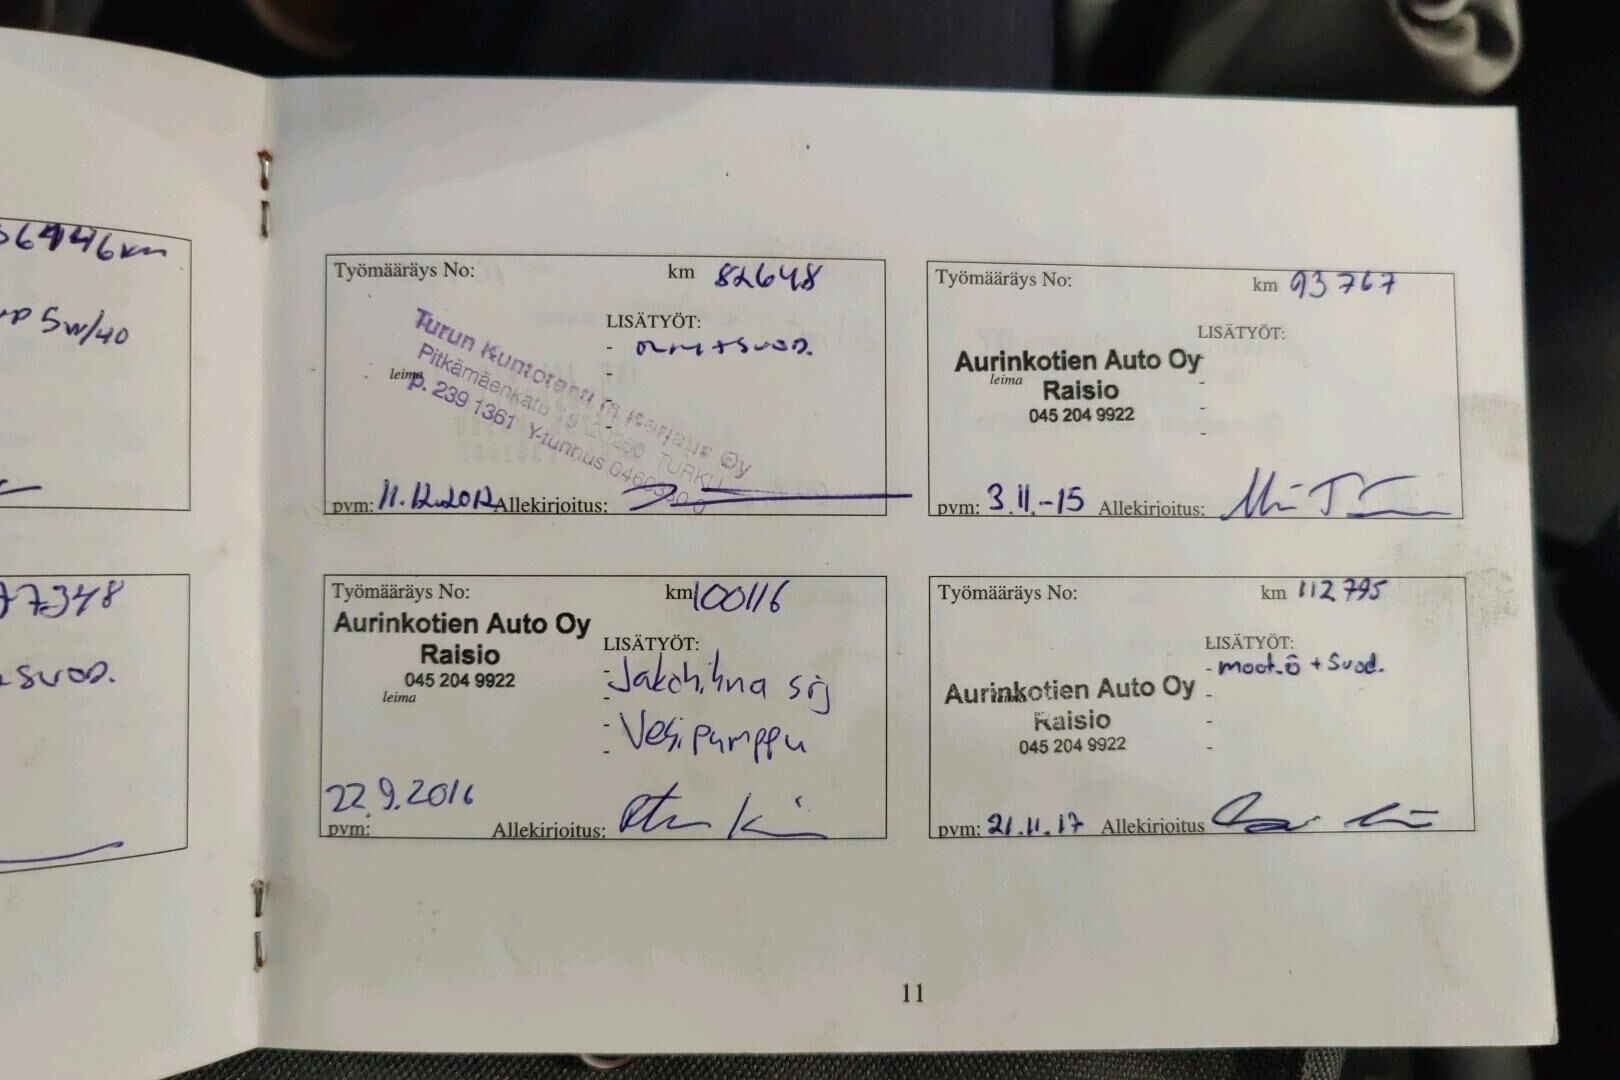 6446km
5w/40
77348
svod.
Työmääräys No: km 82648
LISÄTYÖT:
- + svod.
-
Turun Kuntotesti ja Korjaus Oy
Pitkämäenkatu TURKU
leima
p. 239 1361 Y-tunnus
pvm: 11.12.2012 Allekirjoitus:
Työmääräys No: km 93767
LISÄTYÖT:
Aurinkotien Auto Oy
leima
Raisio
045 204 9922
-
-
-
pvm: 3.11.-15 Allekirjoitus:
Työmääräys No: km 100116
Aurinkotien Auto Oy
Raisio
045 204 9922
leima
LISÄTYÖT:
- Jakohihna srj
-
- Vesipumppu
-
22.9.2016
pvm: Allekirjoitus:
Työmääräys No: km 112795
LISÄTYÖT:
- moot.ö + svod.
Aurinkotien Auto Oy
leima
Raisio
045 204 9922
-
-
-
pvm: 21.11.17 Allekirjoitus
11